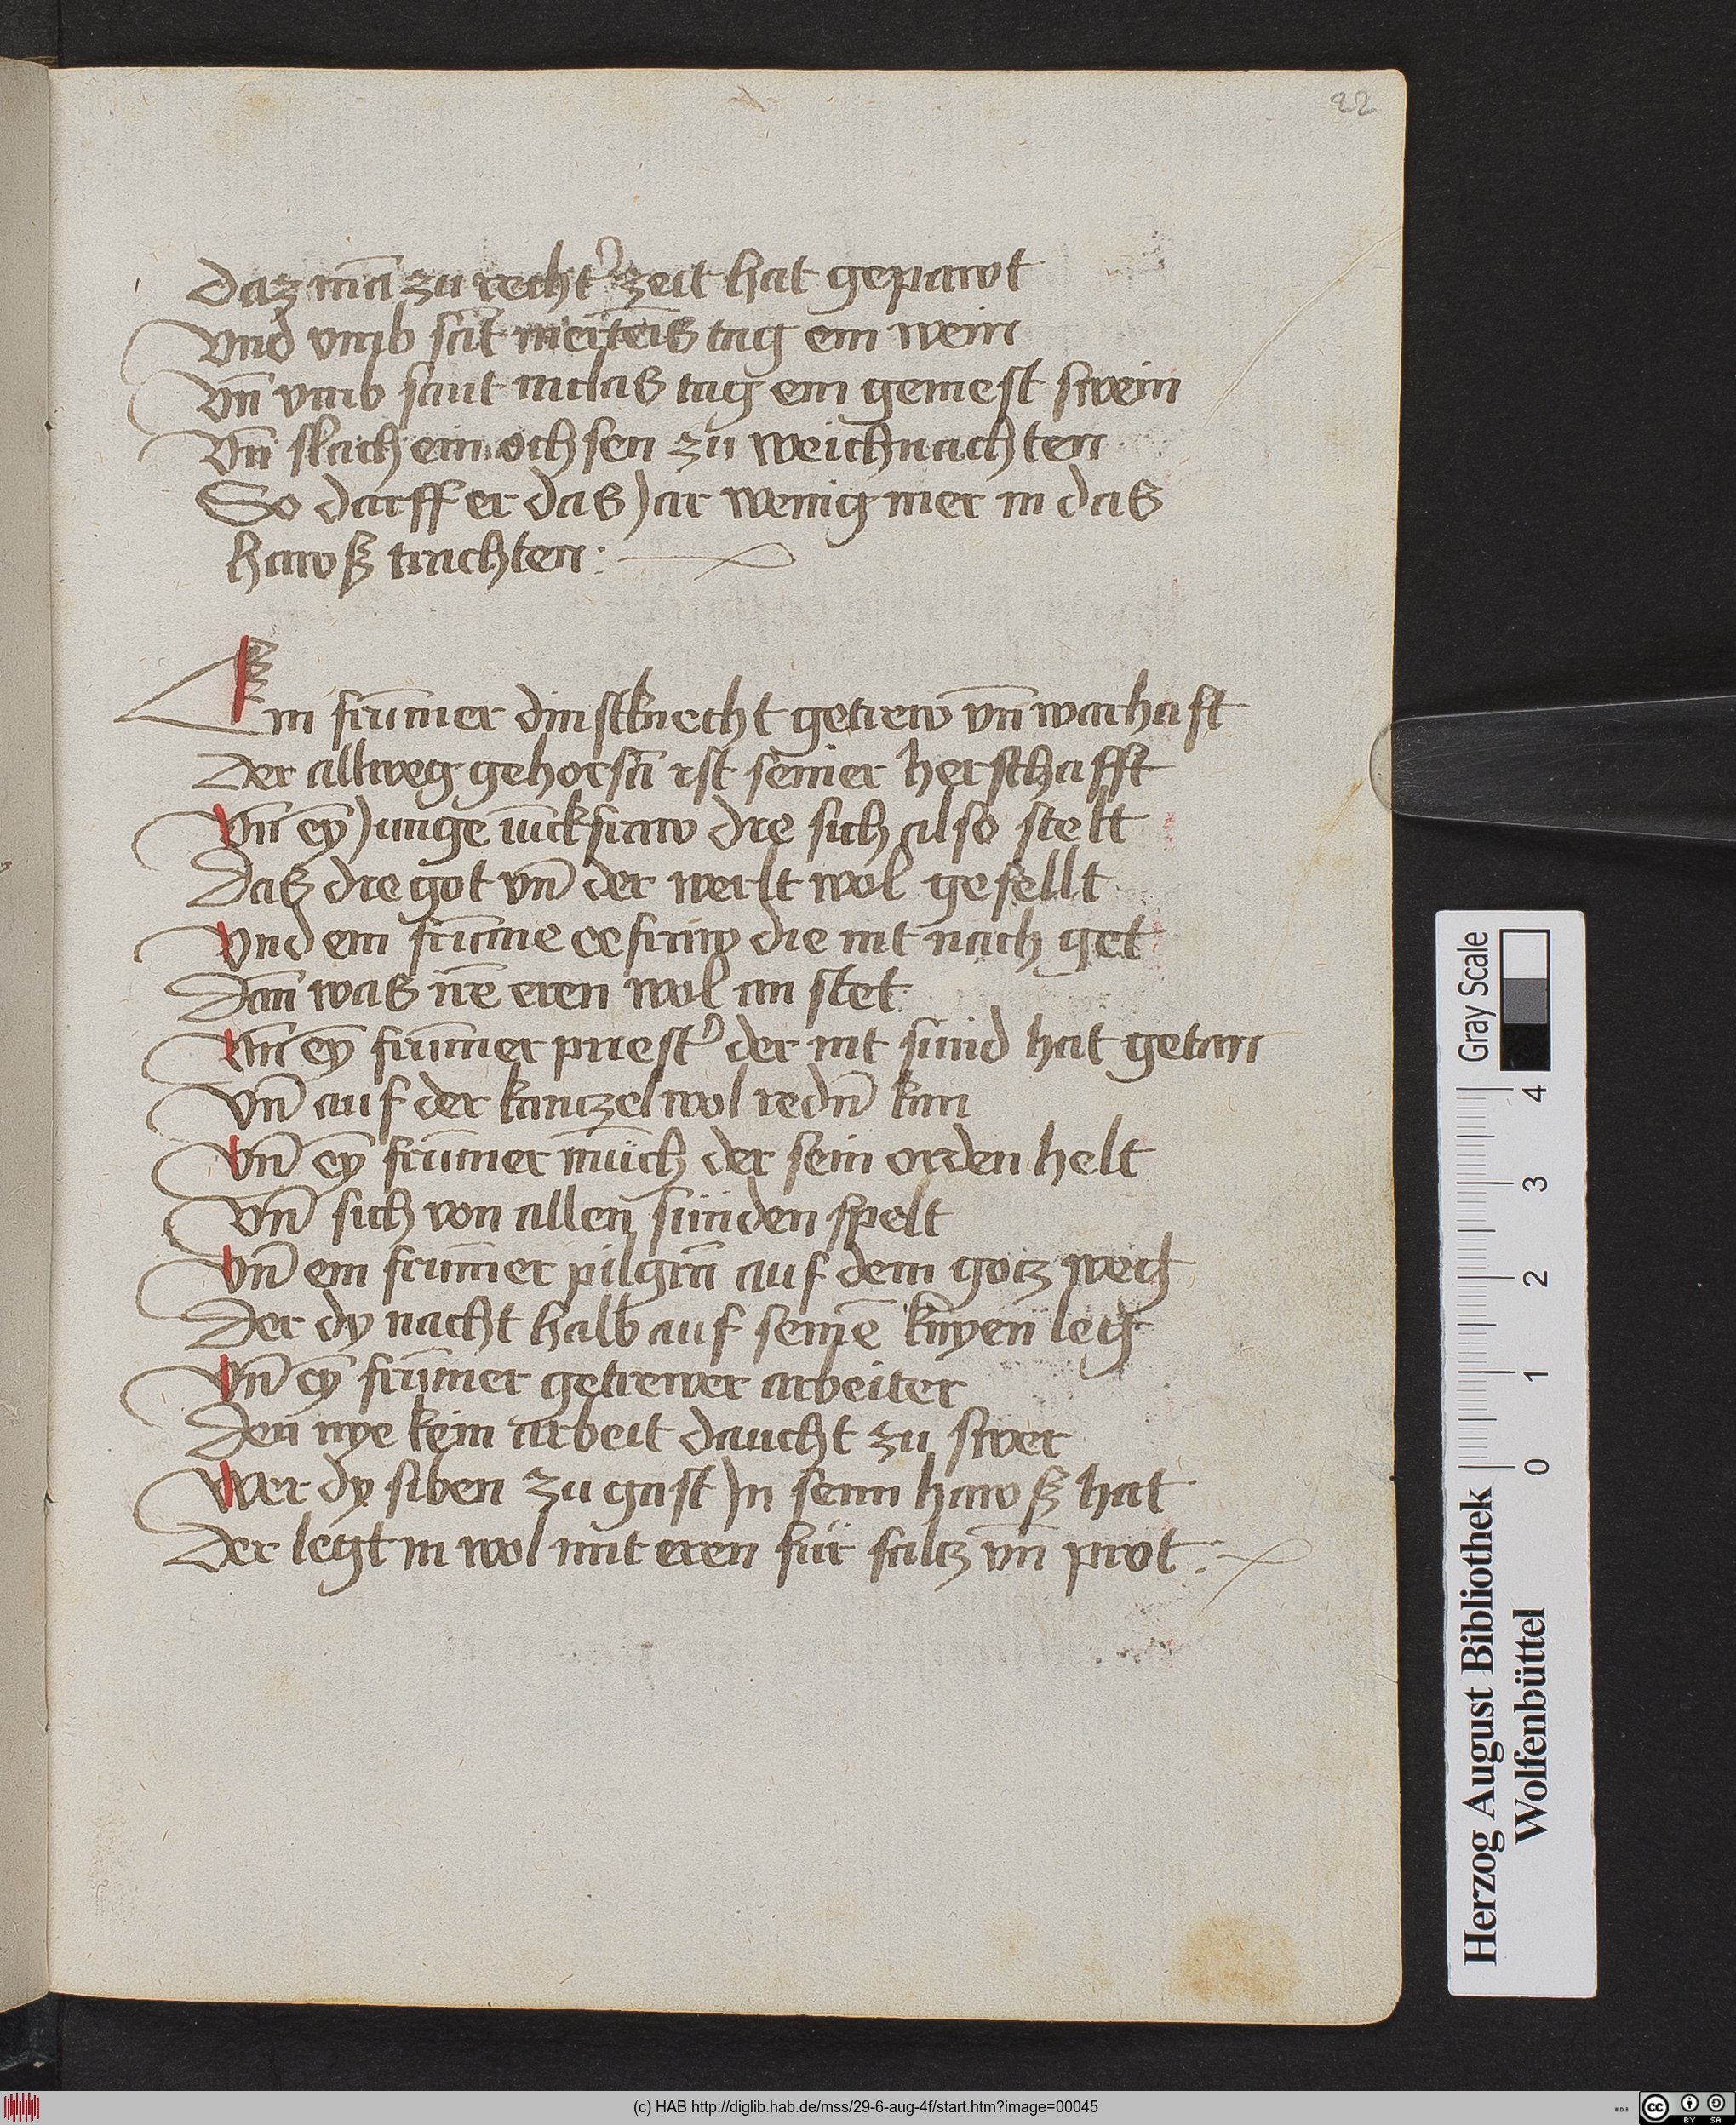 22
Daz mā zu recht’ zeit hat gepawt
Vnd vmb sāt merteīs tag ein wein
Vn̄ vmb sant niclas tag ein gemest swein
Vn̄ slach ein ochsen zu weichnachten
So darff er das jar wenig mer in das
hawsz trachten :
Ein frūmer dinstknecht getrew vn̄ warhaft
Der allweg gehorsā ist seiner herschafft
Vn̄ eȳ junge iūckfraw die sich also stelt
Das die got vn̄ der werlt wol gefellt
Vnd ein frūme eefraw die nit nach get
Dan̄ was irē eren wol an stet
Vn̄ eȳ frūmer priest’ der nit sünd hat getan
Vn̄ auf der kanczel wol redn̄ kan
Vn̄ eȳ frūmer münch der sein orden helt
Vn̄ sich von allen sünden spelt
Vn̄ ein frūmer pilgrā auf dem gotz weg
Der dy nacht halb auf seinē knyen leg
Vn̄ eȳ frūmer getrewer arbeiter
Den nye kein arbeit daucht zu swer
Wer dy siben zu gast jn seim hawsz hat
Der legt in wol mit eren für saltz vn̄ prot .
Gray Scale
0 1 2 3 4
Herzog August Bibliothek
Wolfenbüttel
(c) HAB http://diglib.hab.de/mss/29-6-aug-4f/start.htm?image=00045
cc BY SA